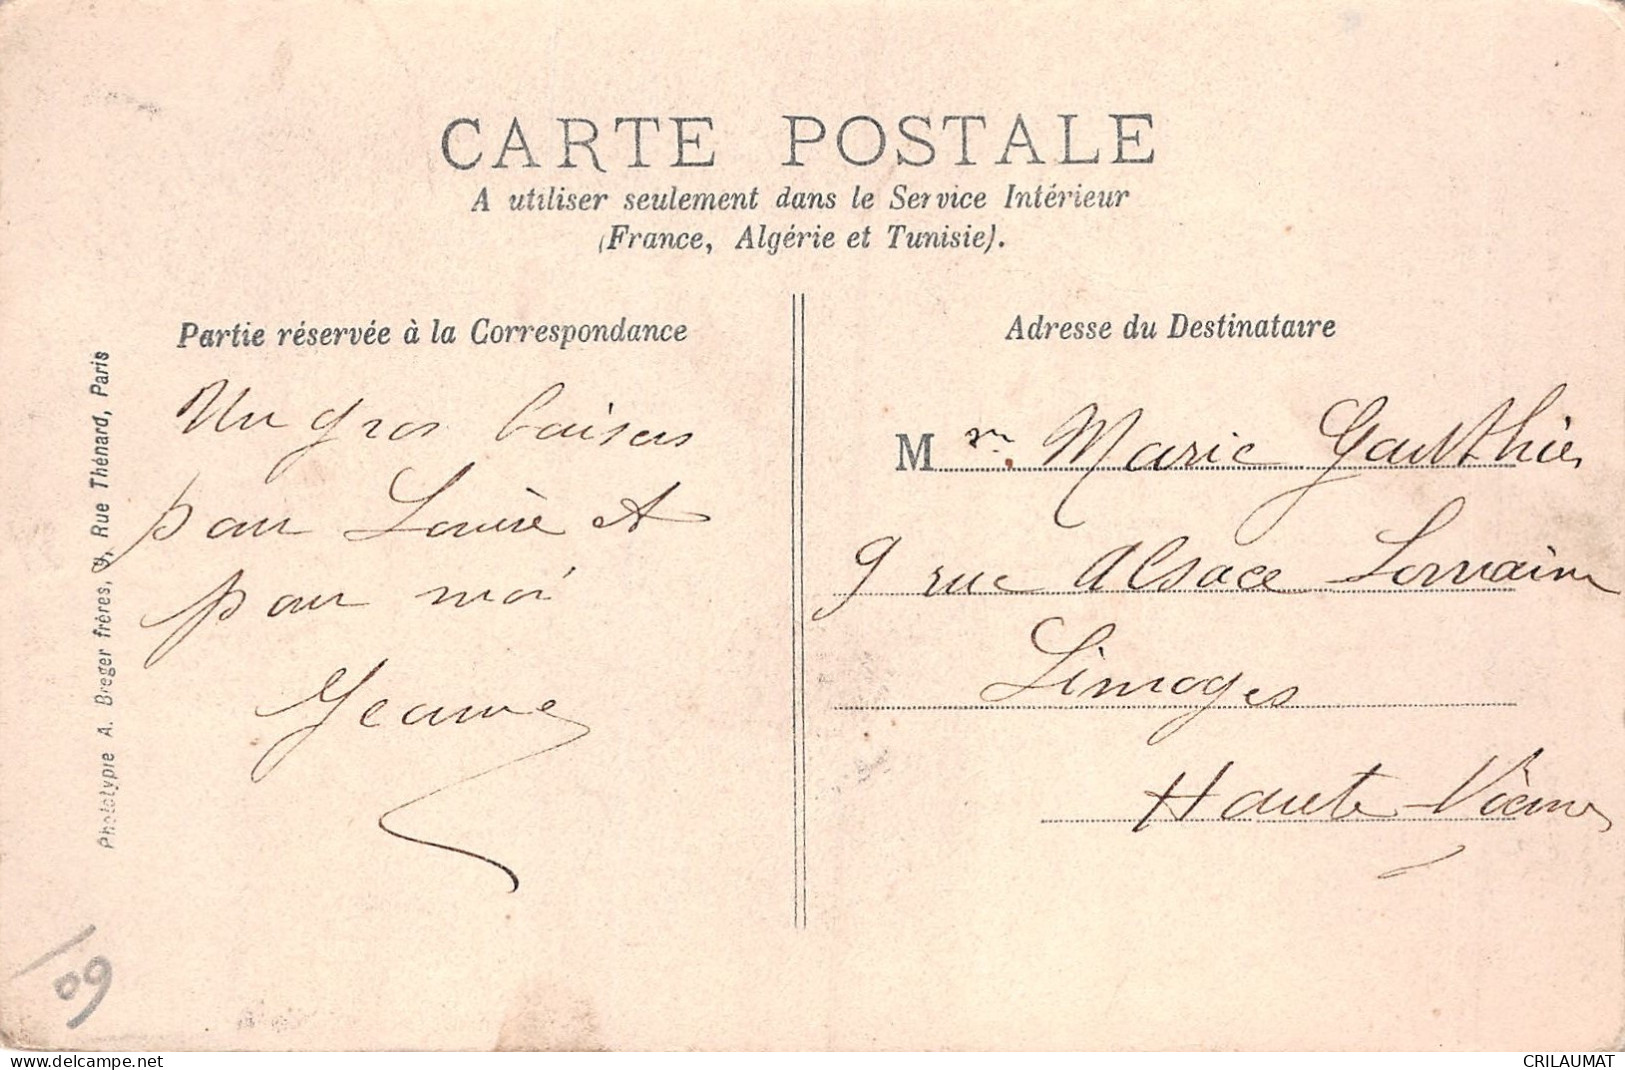 CARTE POSTALE
A utiliser seulement dans le Service Intérieur
(France, Algérie et Tunisie).
Partie réservée à la Correspondance
Un gros baisers
pour Louise et
pour moi
Jeanne
Adresse du Destinataire
M me. Marie Gauthier
9 rue Alsace Lorraine
Limoges
Haute Vienne
Phototypie A. Breger frères, 9, Rue Thénard, Paris
09
www.delcampe.net
CRILAUMAT